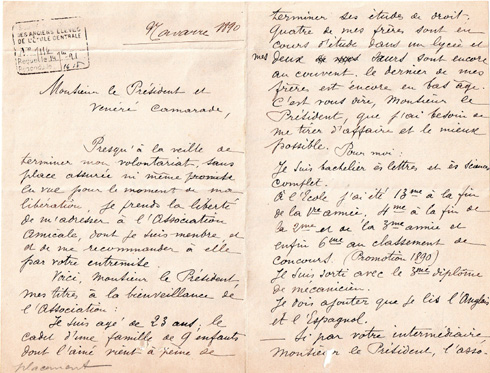 DES ANCIENS ÉLÈVES
DE L'ÉCOLE CENTRALE
N° 1112
Navarre 1890
Monsieur le Président et
Vénéré Camarade,
Presqu'à la veille de
terminer mon volontariat, sans
place assurée ni même promise
en vue pour le moment de ma
libération je prends la liberté
de m'adresser à l'Association
Amicale, dont je suis membre et
et de me recommander à elle
par votre entremise.
Voici, Monsieur le Président,
mes titres à la bienveillance de
l'Association:
Je suis agé de 23 ans; le
cadet d'une famille de 9 enfants
dont l'ainé vient à peine de
placement
terminer ses études de droit.
Quatre de mes frères sont en
cours d'étude dans un lycée et
deux de mes sœurs sont encore
au couvent. le dernier de mes
frères est encore en bas age.
C'est vous dire, Monsieur le
Président, que j'ai besoin de
me tirer d'affaire et le mieux
possible. Pour moi:
Je suis bachelier ès lettres et ès sciences
complet.
A l'École j'ai été 13me à la fin
de la 1ère année, 4me à la fin de
la 2me et de la 3me année et
enfin 6me au classement de
concours. (Promotion 1890)
Je suis sorti avec le 3me diplôme
de mécanicien.
Je dois ajouter que je lis l'Anglais
et l'Espagnol.
— Si par votre intermédiaire,
Monsieur le Président, l'asso-